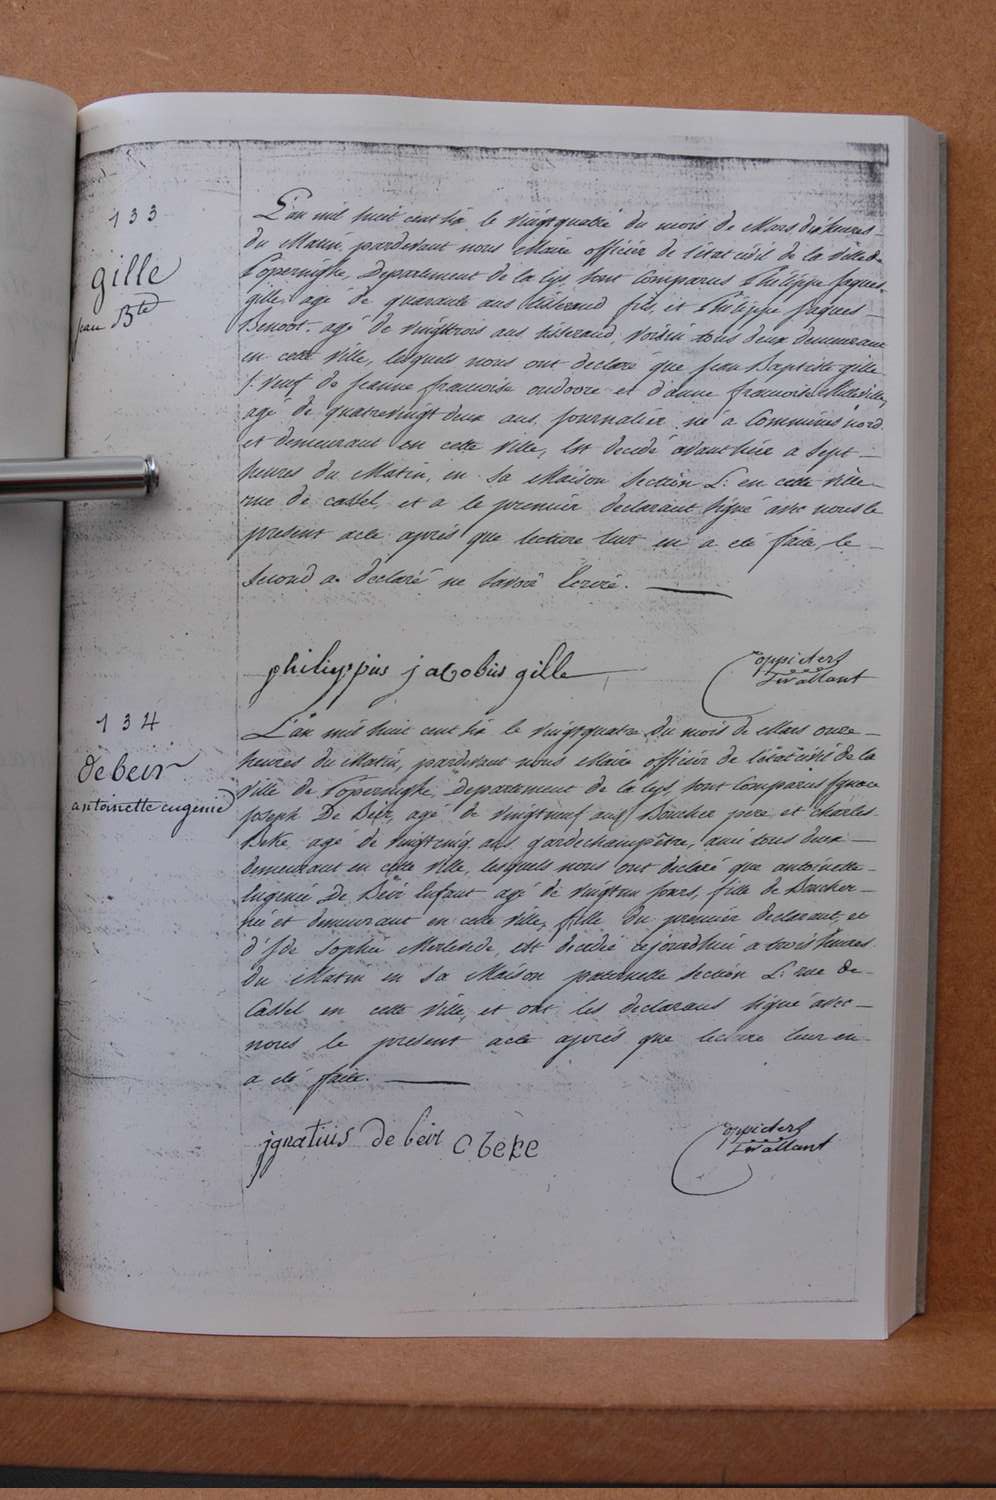 133
gille
jean Bte
L'an mil huit cent six le vingtquatre du mois de Mars dix heures
du Matin, pardevant nous Maire officier de l'état civil de la ville de
Poperinghe, Departement de la Lys, sont comparus Philippe Jaques
gille, agé de quarante ans tisserand fils, et Philippe Jaques
Benoot, agé de vingttrois ans tisserand voisin tous deux demeurant
en cette ville, lesquels nous ont declaré que Jean Baptiste gille
veuf de Jeanne francoise oudoore et d'anne francoise
agé de quatrevingt deux ans, journalier né a Commines nord
et demeurant en cette ville, est decedé avanthier a sept
heures du Matin, en sa Maison Section L: en cette ville
rue de cassel, et a le premier declarant signé avec nous le
present acte aprés que lecture leur en a eté faite, le
second a declaré ne savoir Ecrire.
philippus jacobus gille
134
De beir
antoinette eugenie
L'an mil huit cent six le vingtquatre du mois de Mars onze
heures du Matin, pardevant nous Maire officier de l'état civil de la
ville de Poperinghe, Departement de la Lys, sont comparus Ignace
Joseph De Beir, agé de vingtneuf ans Boucher pere, et charles
Beke, agé de vingtcinq ans gardechampêtre, ami tous deux
demeurant en cette ville, lesquels nous ont declaré que antoinette
Eugenie De Beir Enfant agé de vingtun jours, fille de Boucher
née et demeurant en cette ville, fille du premier declarant, et
d' Sophie est decedée cejourdhui a trois heures
du Matin en sa Maison paternelle section L: rue de
Cassel en cette ville, et ont les declarans signé avec
nous le present acte aprés que lecture leur en
a eté faite.
jgnatius de beir C beke